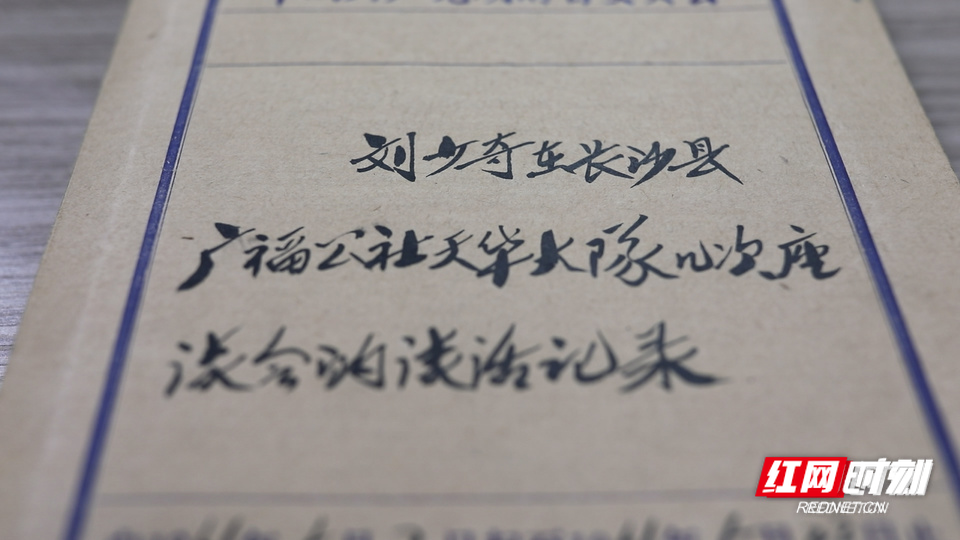 刘少奇在长沙县
广福公社天华大队几次座
谈会的谈话记录
红网时刻
REDNET.CN